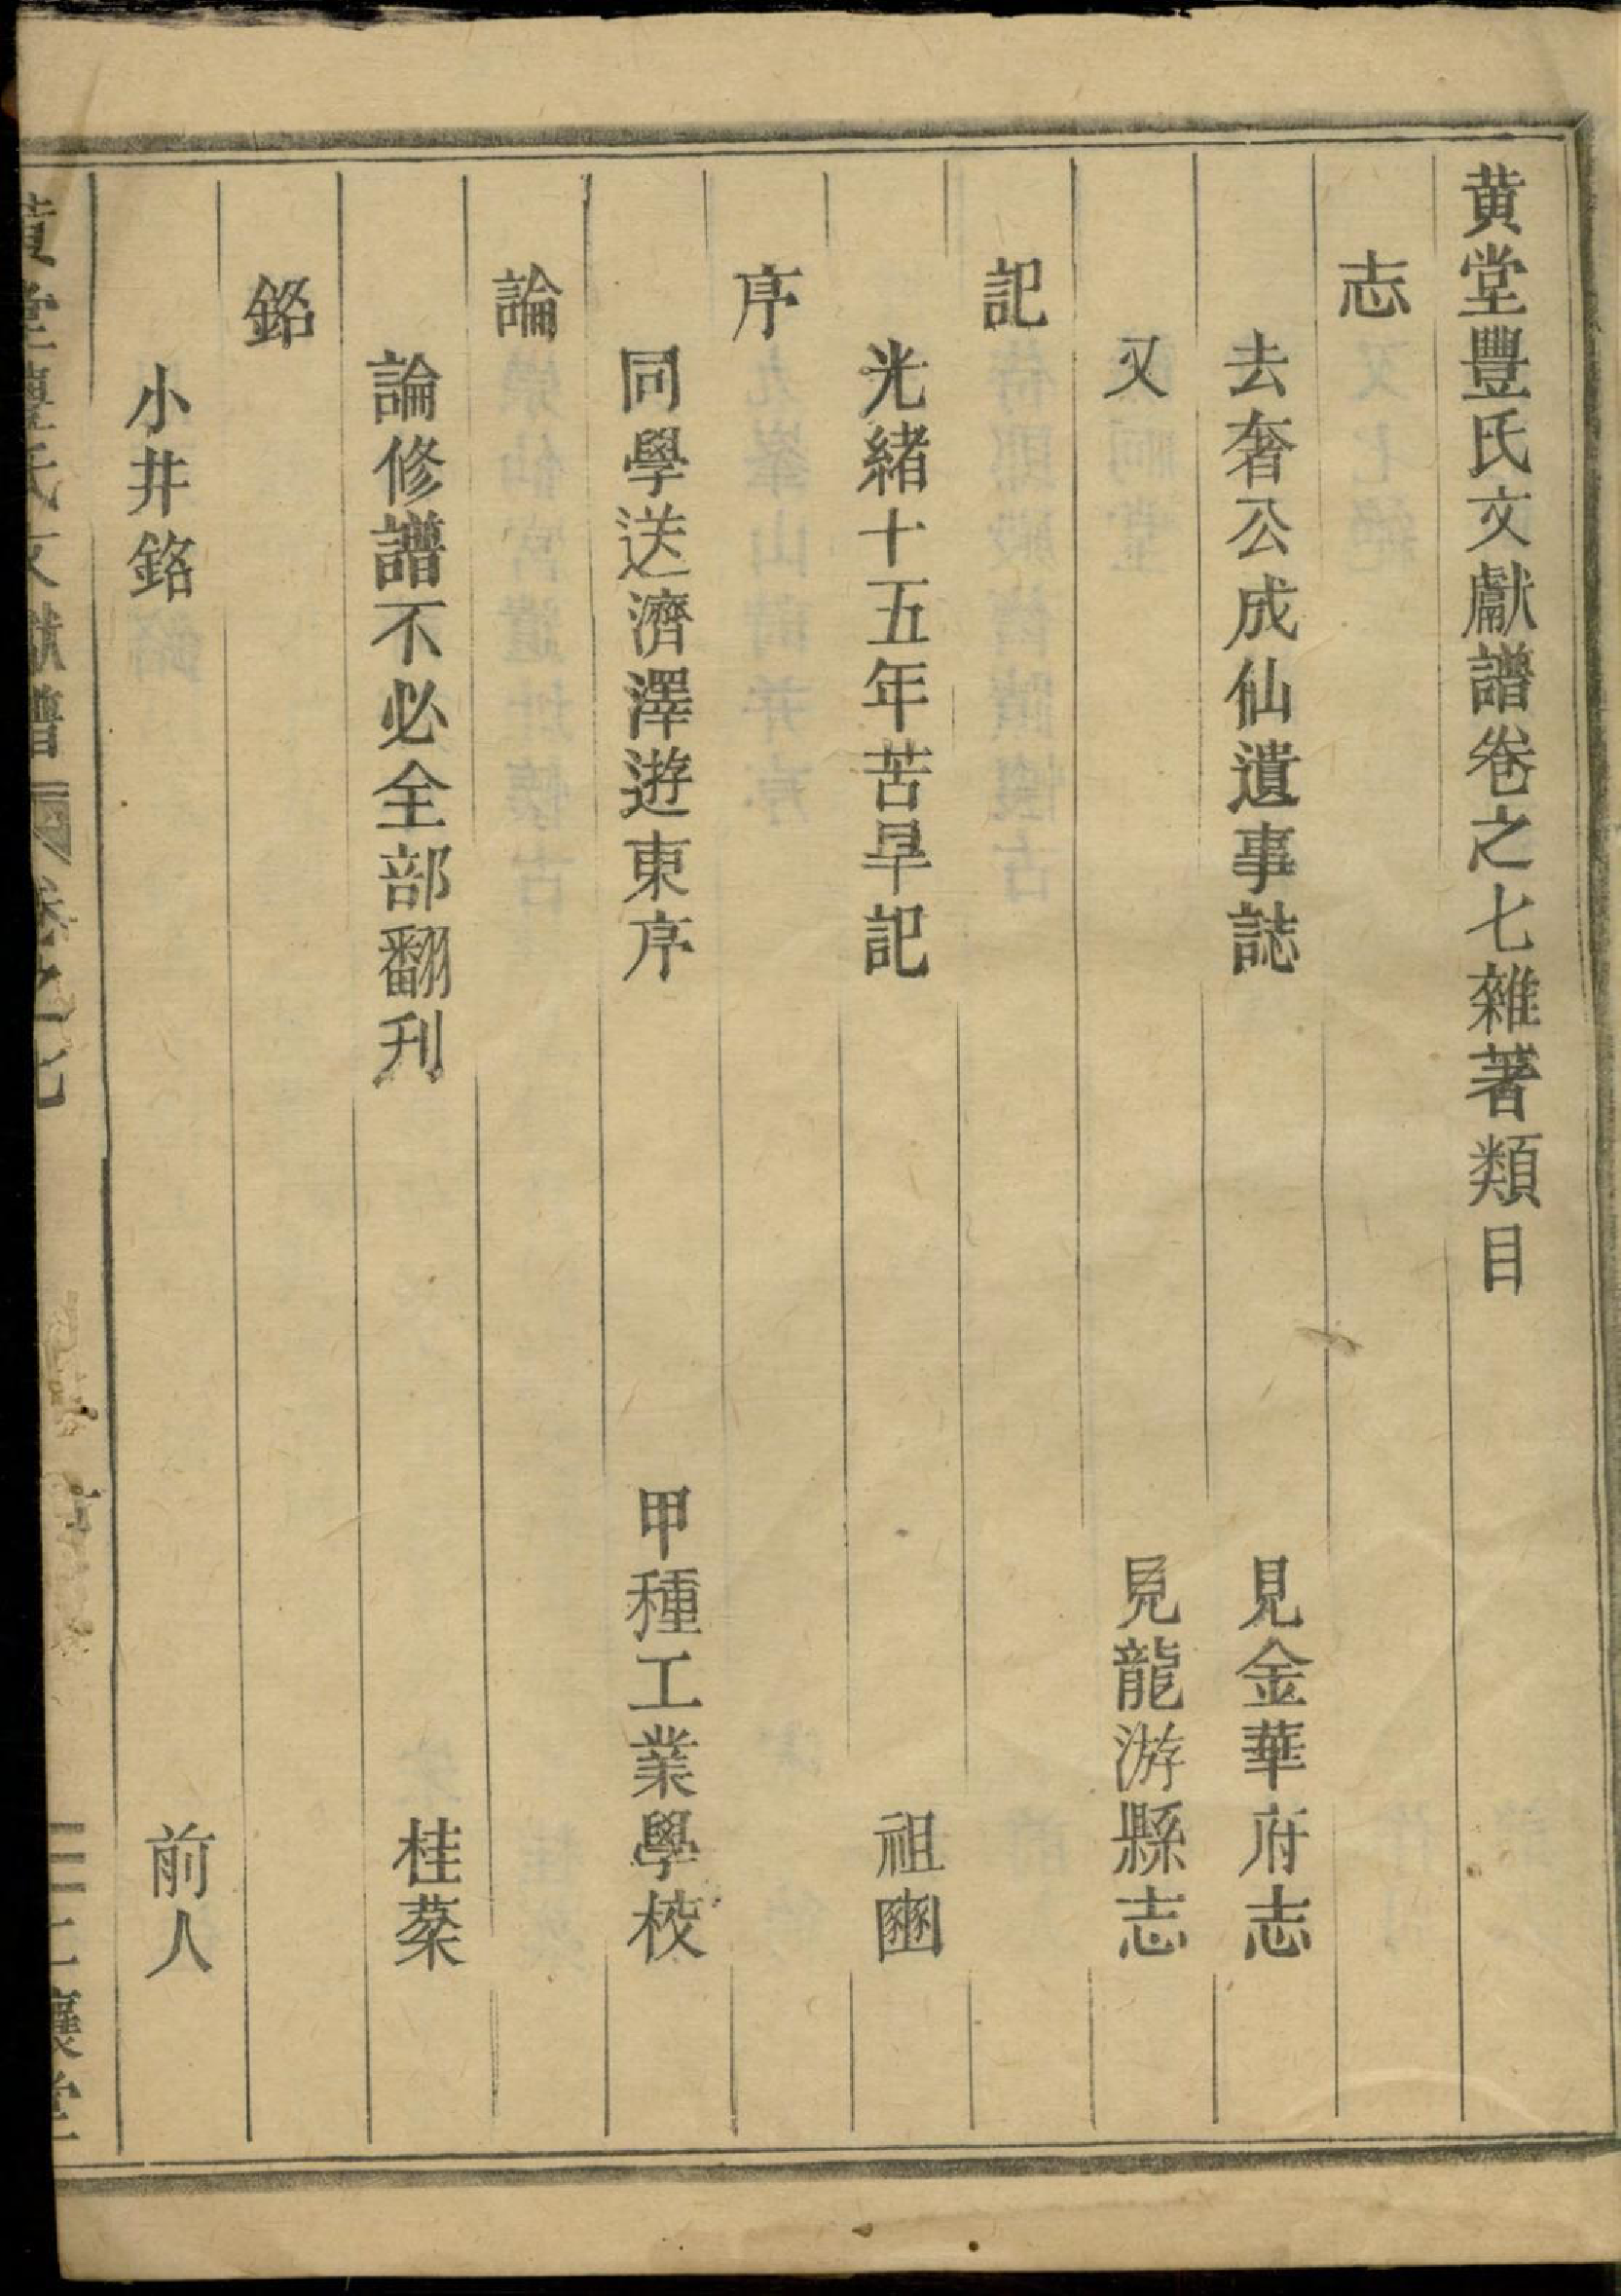 黄堂豐氏文獻譜卷之七雜著類目
志
去奢公成仙遺事誌 見金華府志
又 見龍游縣志
記
光緒十五年苦旱記 祖豳
序
同學送濟澤遊東序 甲種工業學校
論
論修譜不必全部翻刋 桂棻
銘
小井銘 前人
黄堂豐氏文獻譜 卷之七 三 仁讓堂